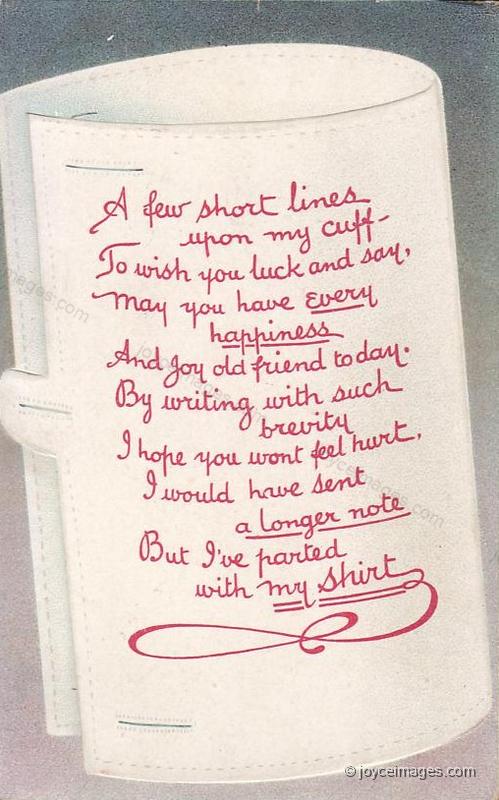 A few short lines
upon my cuff-
To wish you luck and say,
May you have every
happiness
And Joy old friend today.
By writing with such
brevity
I hope you wont feel hurt,
I would have sent
a longer note
But I've parted
with my shirt
© joyceimages.com